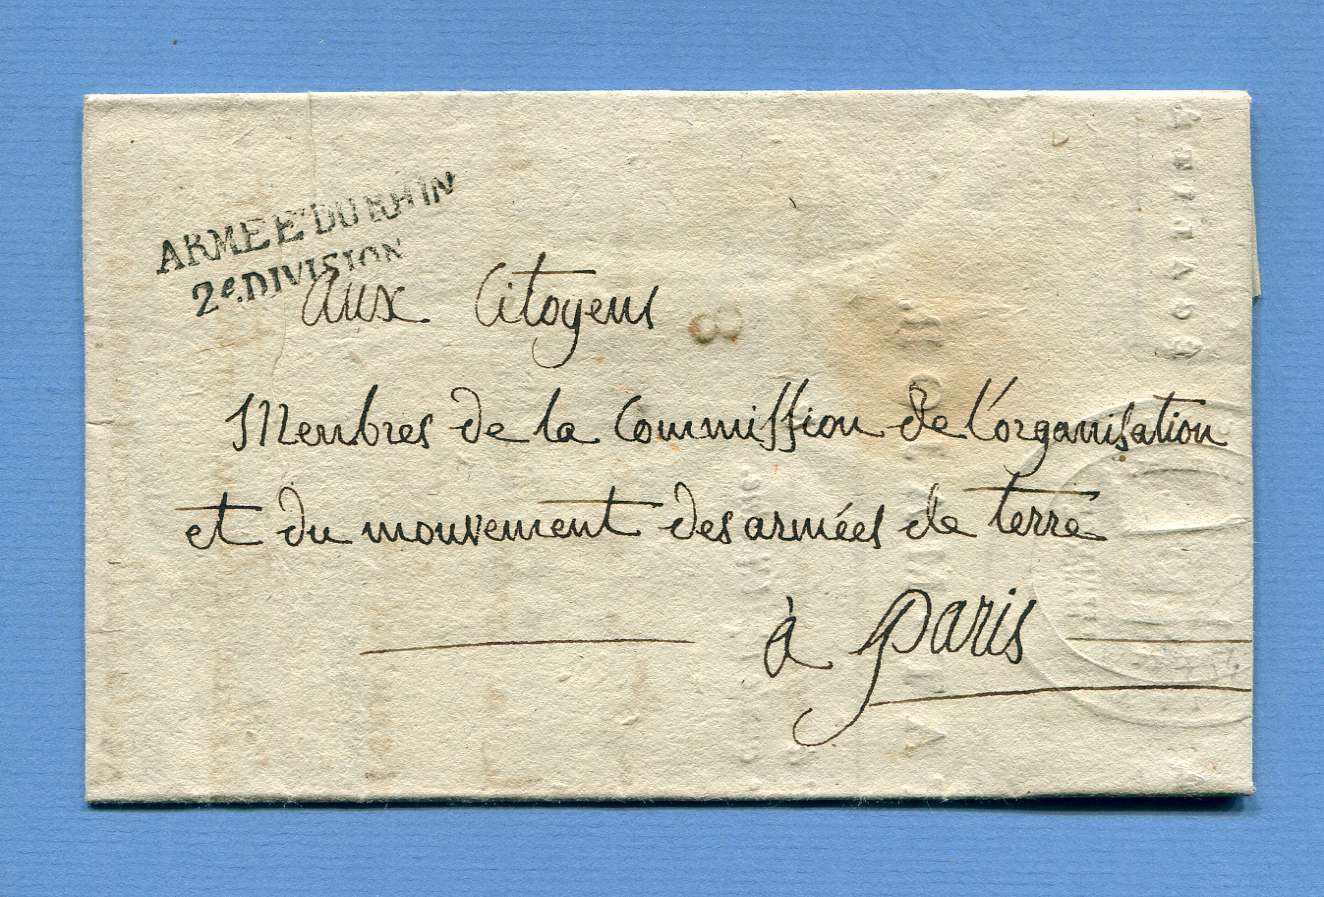 ARMEE DU RHIN
2e. DIVISION
Aux Citoyens
Membres de la Commission de l'organisation
et du mouvement des armées de terre
à Paris